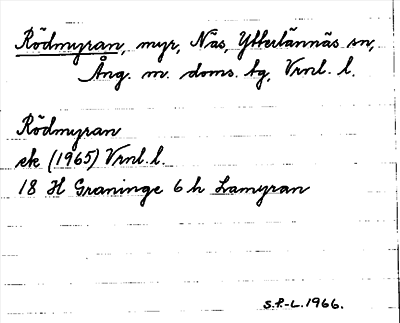 Rödmyran, myr, Näs, Ytterlännäs sn,
Ång. m. doms. tg, Vrnl. l.
Rödmyran
ek (1965) Vrnl. l.
18 H Graninge 6 h Lamyran
S.P.-L. 1966.